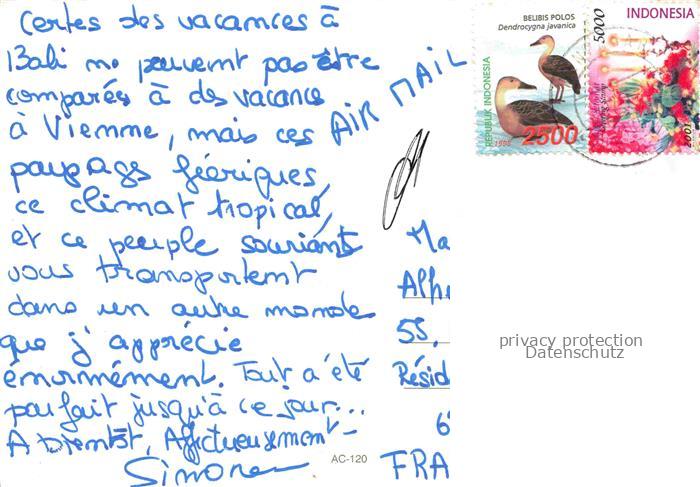 Certes des vacances à
Bali ne peuvent pas être
comparés à des vacance
à Vienne, mais ces
paysages féériques,
ce climat tropical,
et ce peuple souriants
vous transportent
dans un autre monde
que j'apprécie
énormément. Tout a été
parfait jusqu'à ce jour...
A bientôt, Affectueusement -
Simone
AIR MAIL
BELIBIS POLOS
Dendrocygna javanica
REPUBLIK INDONESIA
1998
2500
5000
INDONESIA
Ma
Alph
55,
Résid
6
FRA
privacy protection
Datenschutz
AC-120